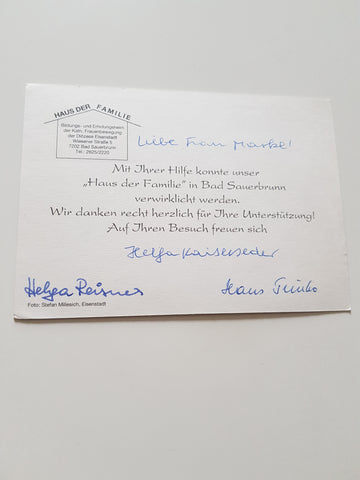 HAUS DER FAMILIE
Bildungs- und Erholungsheim
der Kath. Frauenbewegung
der Diözese Eisenstadt
Wiesener Straße 5
7202 Bad Sauerbrunn
Tel.: 2625/2220
Liebe Frau
Mit Ihrer Hilfe konnte unser
„Haus der Familie" in Bad Sauerbrunn
verwirklicht werden.
Wir danken recht herzlich für Ihre Unterstützung!
Auf Ihren Besuch freuen sich
Helga Kaiserseder
Helga Reisner
Hans Trinko
Foto: Stefan Millesich, Eisenstadt